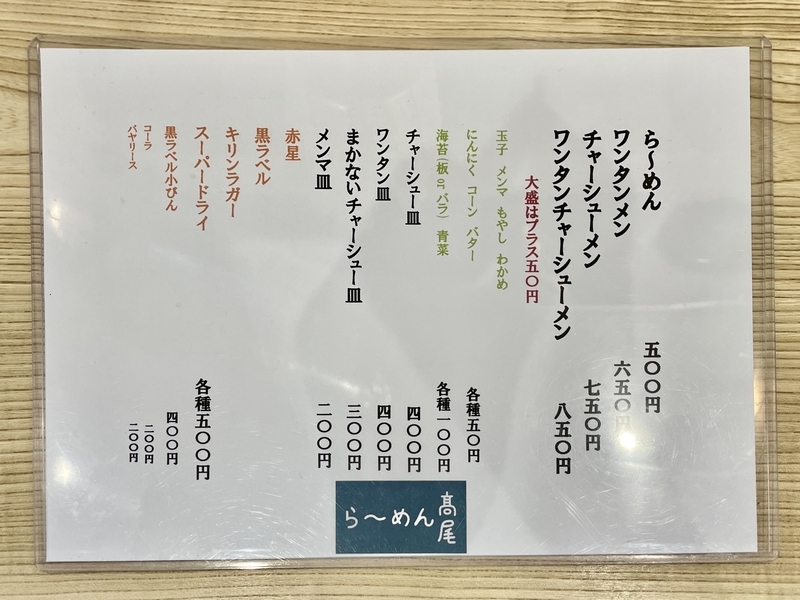 ら〜めん 五〇〇円
ワンタンメン 六五〇円
チャーシューメン 七五〇円
ワンタンチャーシューメン 八五〇円
大盛はプラス五〇円
玉子 メンマ もやし わかめ
にんにく コーン バター 各種五〇円
海苔(板 or バラ) 青菜 各種一〇〇円
チャーシュー皿 四〇〇円
ワンタン皿 四〇〇円
まかないチャーシュー皿 三〇〇円
メンマ皿 二〇〇円
赤星
黒ラベル
キリンラガー
スーパードライ 各種五〇〇円
黒ラベル小びん 四〇〇円
コーラ 二〇〇円
バヤリース 二〇〇円
ら〜めん 髙尾